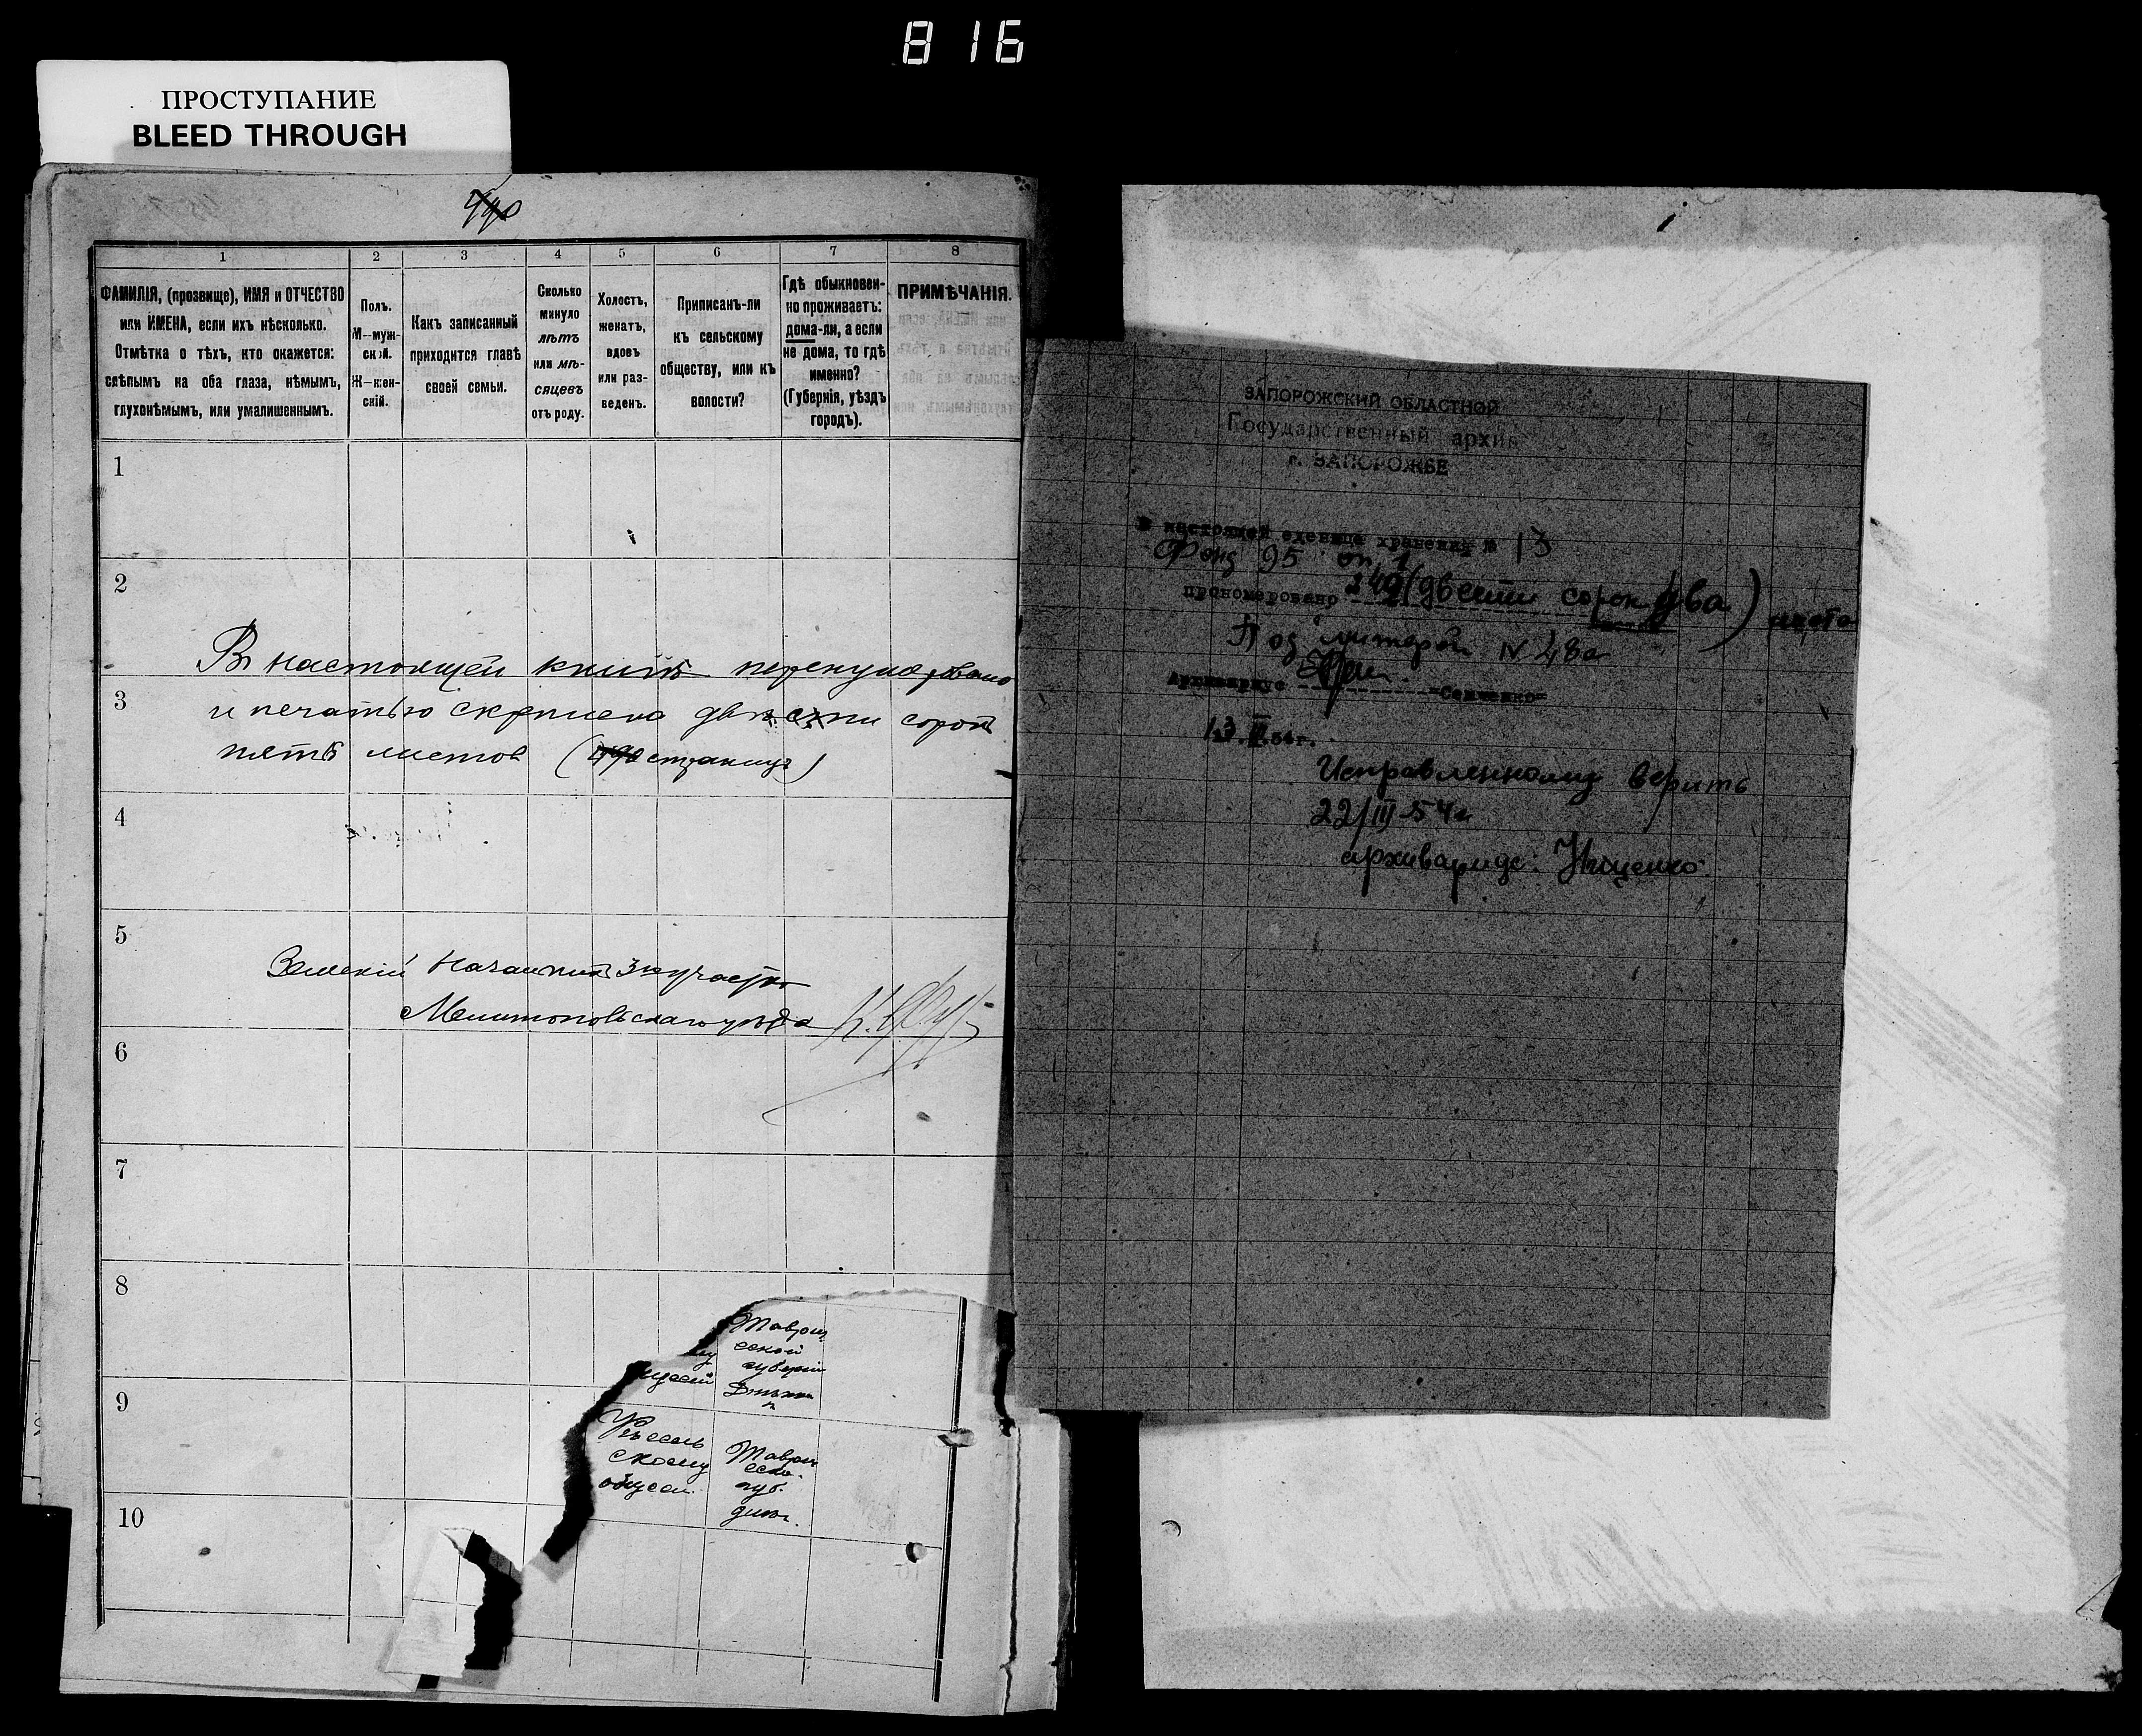 816
ПРОСТУПАНИЕ
BLEED THROUGH
490
1 2 3 4 5 6 7 8
ФАМИЛІЯ, (прозвище), ИМЯ и ОТЧЕСТВО
или ИМЕНА, если ихъ нѣсколько.
Отмѣтка о тѣхъ, кто окажется:
слѣпымъ на оба глаза, нѣмымъ,
глухонѣмымъ, или умалишеннымъ.
Полъ.
М—муж-
ской.
Ж—жен-
скій.
Какъ записанный
приходится главѣ
своей семьи.
Сколько
минуло
лѣтъ
или мѣ-
сяцевъ
отъ роду.
Холостъ,
женатъ,
вдовъ
или раз-
веденъ.
Приписанъ-ли
къ сельскому
обществу, или къ
волости?
Гдѣ обыкновен-
но проживаетъ:
дома-ли, а если
не дома, то гдѣ
именно?
(Губернія, уѣздъ
городъ).
ПРИМѢЧАНІЯ.
1
2
В настоящей книгѣ перенумеровано
3
и печатью скреплена двѣсти сорокъ
пять листов (490 страниц)
4
5
Земскій Начальникъ 3го участка
Мелитопольскаго уѣзда
6
7
8
9
10
Таврич
еской
губерніи
Таврич
еско.
губ.
скому
общест.
ЗАПОРОЖСКИЙ ОБЛАСТНОЙ
Государственный архив
г. ЗАПОРОЖЬЕ
В настоящей еденице хранения № 13
Фонд 95 оп. 1
прономеровано 242 (двести сорок два) листа
Под литерой N 48а
Архивариус =Сенченко=
13.III.54г.
Исправленному верить
22/III-54г
архивариус: